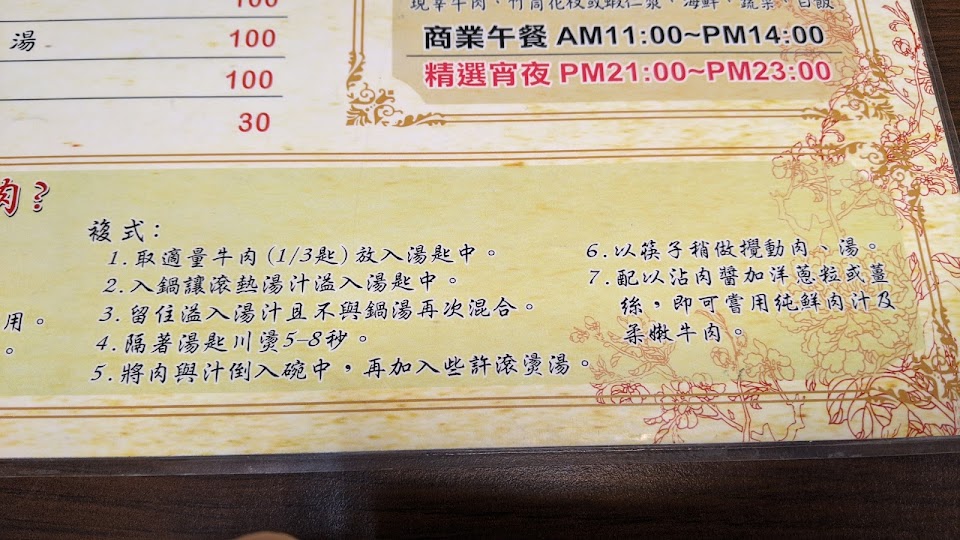 100
湯 100
100
30
現宰牛肉、竹筒花枝或蝦仁漿、海鮮、蔬菜、白飯
商業午餐 AM11:00~PM14:00
精選宵夜 PM21:00~PM23:00
肉?
用。
。
複式:
1.取適量牛肉(1/3匙)放入湯匙中。
2.入鍋讓滾熱湯汁溢入湯匙中。
3.留住溢入湯汁且不與鍋湯再次混合。
4.隔著湯匙川燙5-8秒。
5.將肉與汁倒入碗中,再加入些許滾燙湯。
6.以筷子稍做攪動肉、湯。
7.配以沾肉醬加洋蔥粒或薑
絲,即可嘗用純鮮肉汁及
柔嫩牛肉。